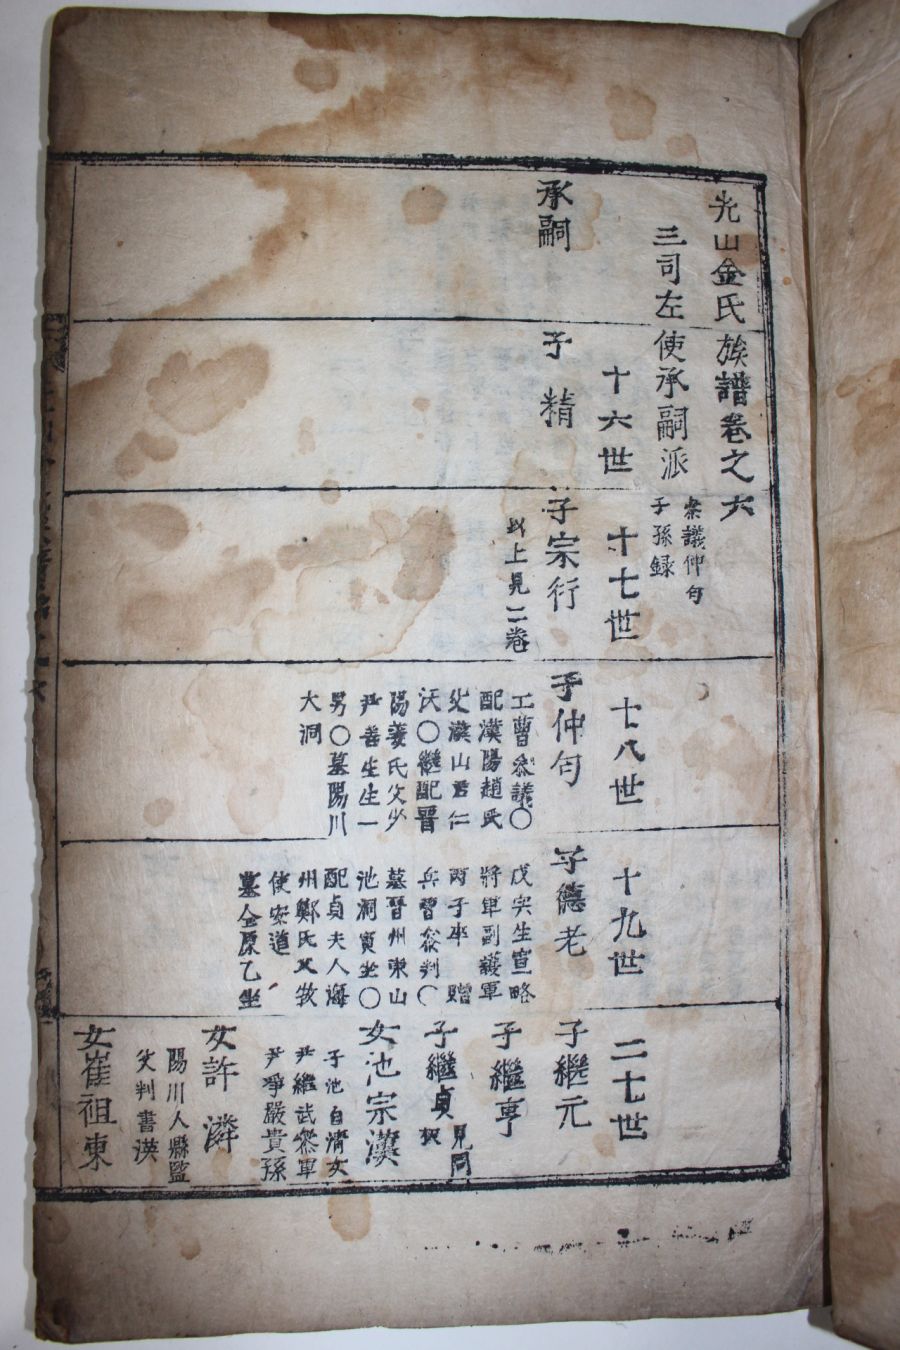 光山金氏族譜卷之六
三司左使承嗣派
叅議仲句
子孫録
承嗣
十六世
子精
十七世
子宗衍
以上見二卷
十八世
子仲句
工曹叅議〇
配漢陽趙氏
父漢山君仁
沃〇繼配晋
陽姜氏父少
尹善生生一
男〇墓陽川
大洞
十九世
子德老
戊寅生宣略
將軍副護軍
丙子卒贈
兵曹叅判〇
墓晉州東山
池洞寅坐〇
配貞夫人海
州鄭氏父牧
使安道
墓金原乙坐
二十世
子繼元
子繼亨
子繼貞
見同
女池宗漢
子池自濱女
尹繼武叅軍
尹琤嚴貴孫
女許潾
陽川人縣監
父判書渶
女崔祖東